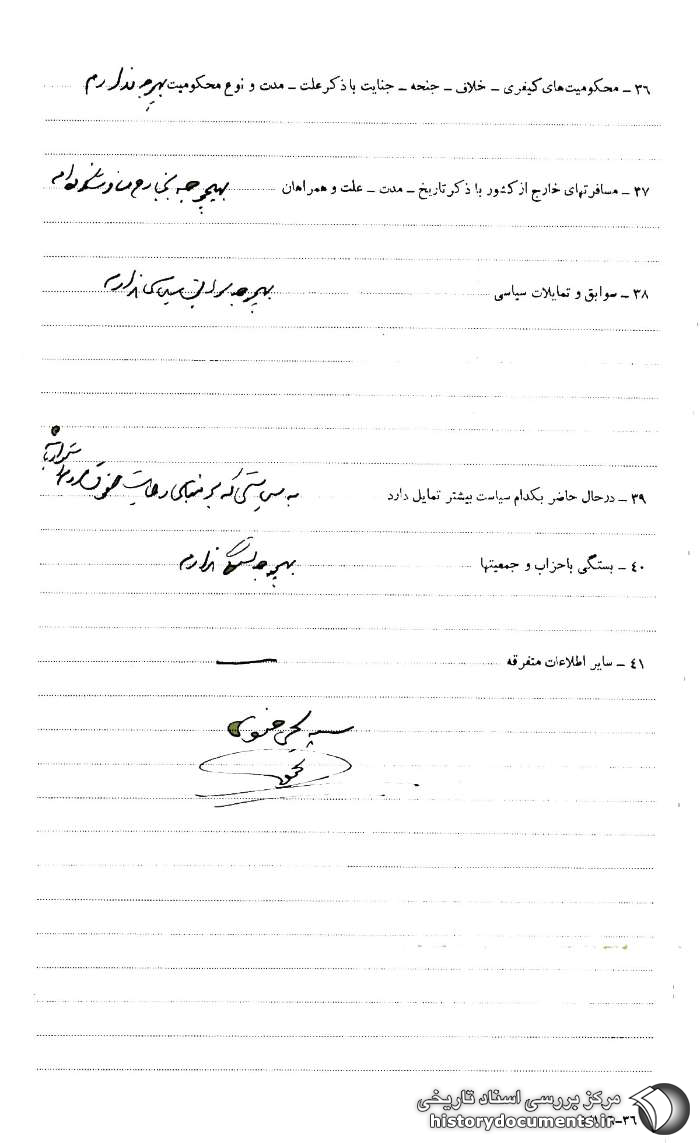 ۳۶ ـ محکومیت‌های کیفری ـ خلاف ـ جنحه ـ جنایت با ذکر علت ـ مدت و نوع محکومیت بهیچوجه ندارم
۳۷ ـ مسافرتهای خارج از کشور با ذکر تاریخ ـ مدت ـ علت و همراهان بهیچوجه بخارج مسافرت نکرده‌ام
۳۸ ـ سوابق و تمایلات سیاسی بهیچوجه سوابق سیاسی ندارم
۳۹ ـ در حال حاضر بکدام سیاست بیشتر تمایل دارد به سیاستی که بر مبنای رعایت حقوق
۴۰ ـ بستگی باحزاب و جمعیتها بهیچوجه بستگی ندارم
۴۱ ـ سایر اطلاعات متفرقه —
سید یحیی
مرکز بررسی اسناد تاریخی
historydocuments.ir
۳۶